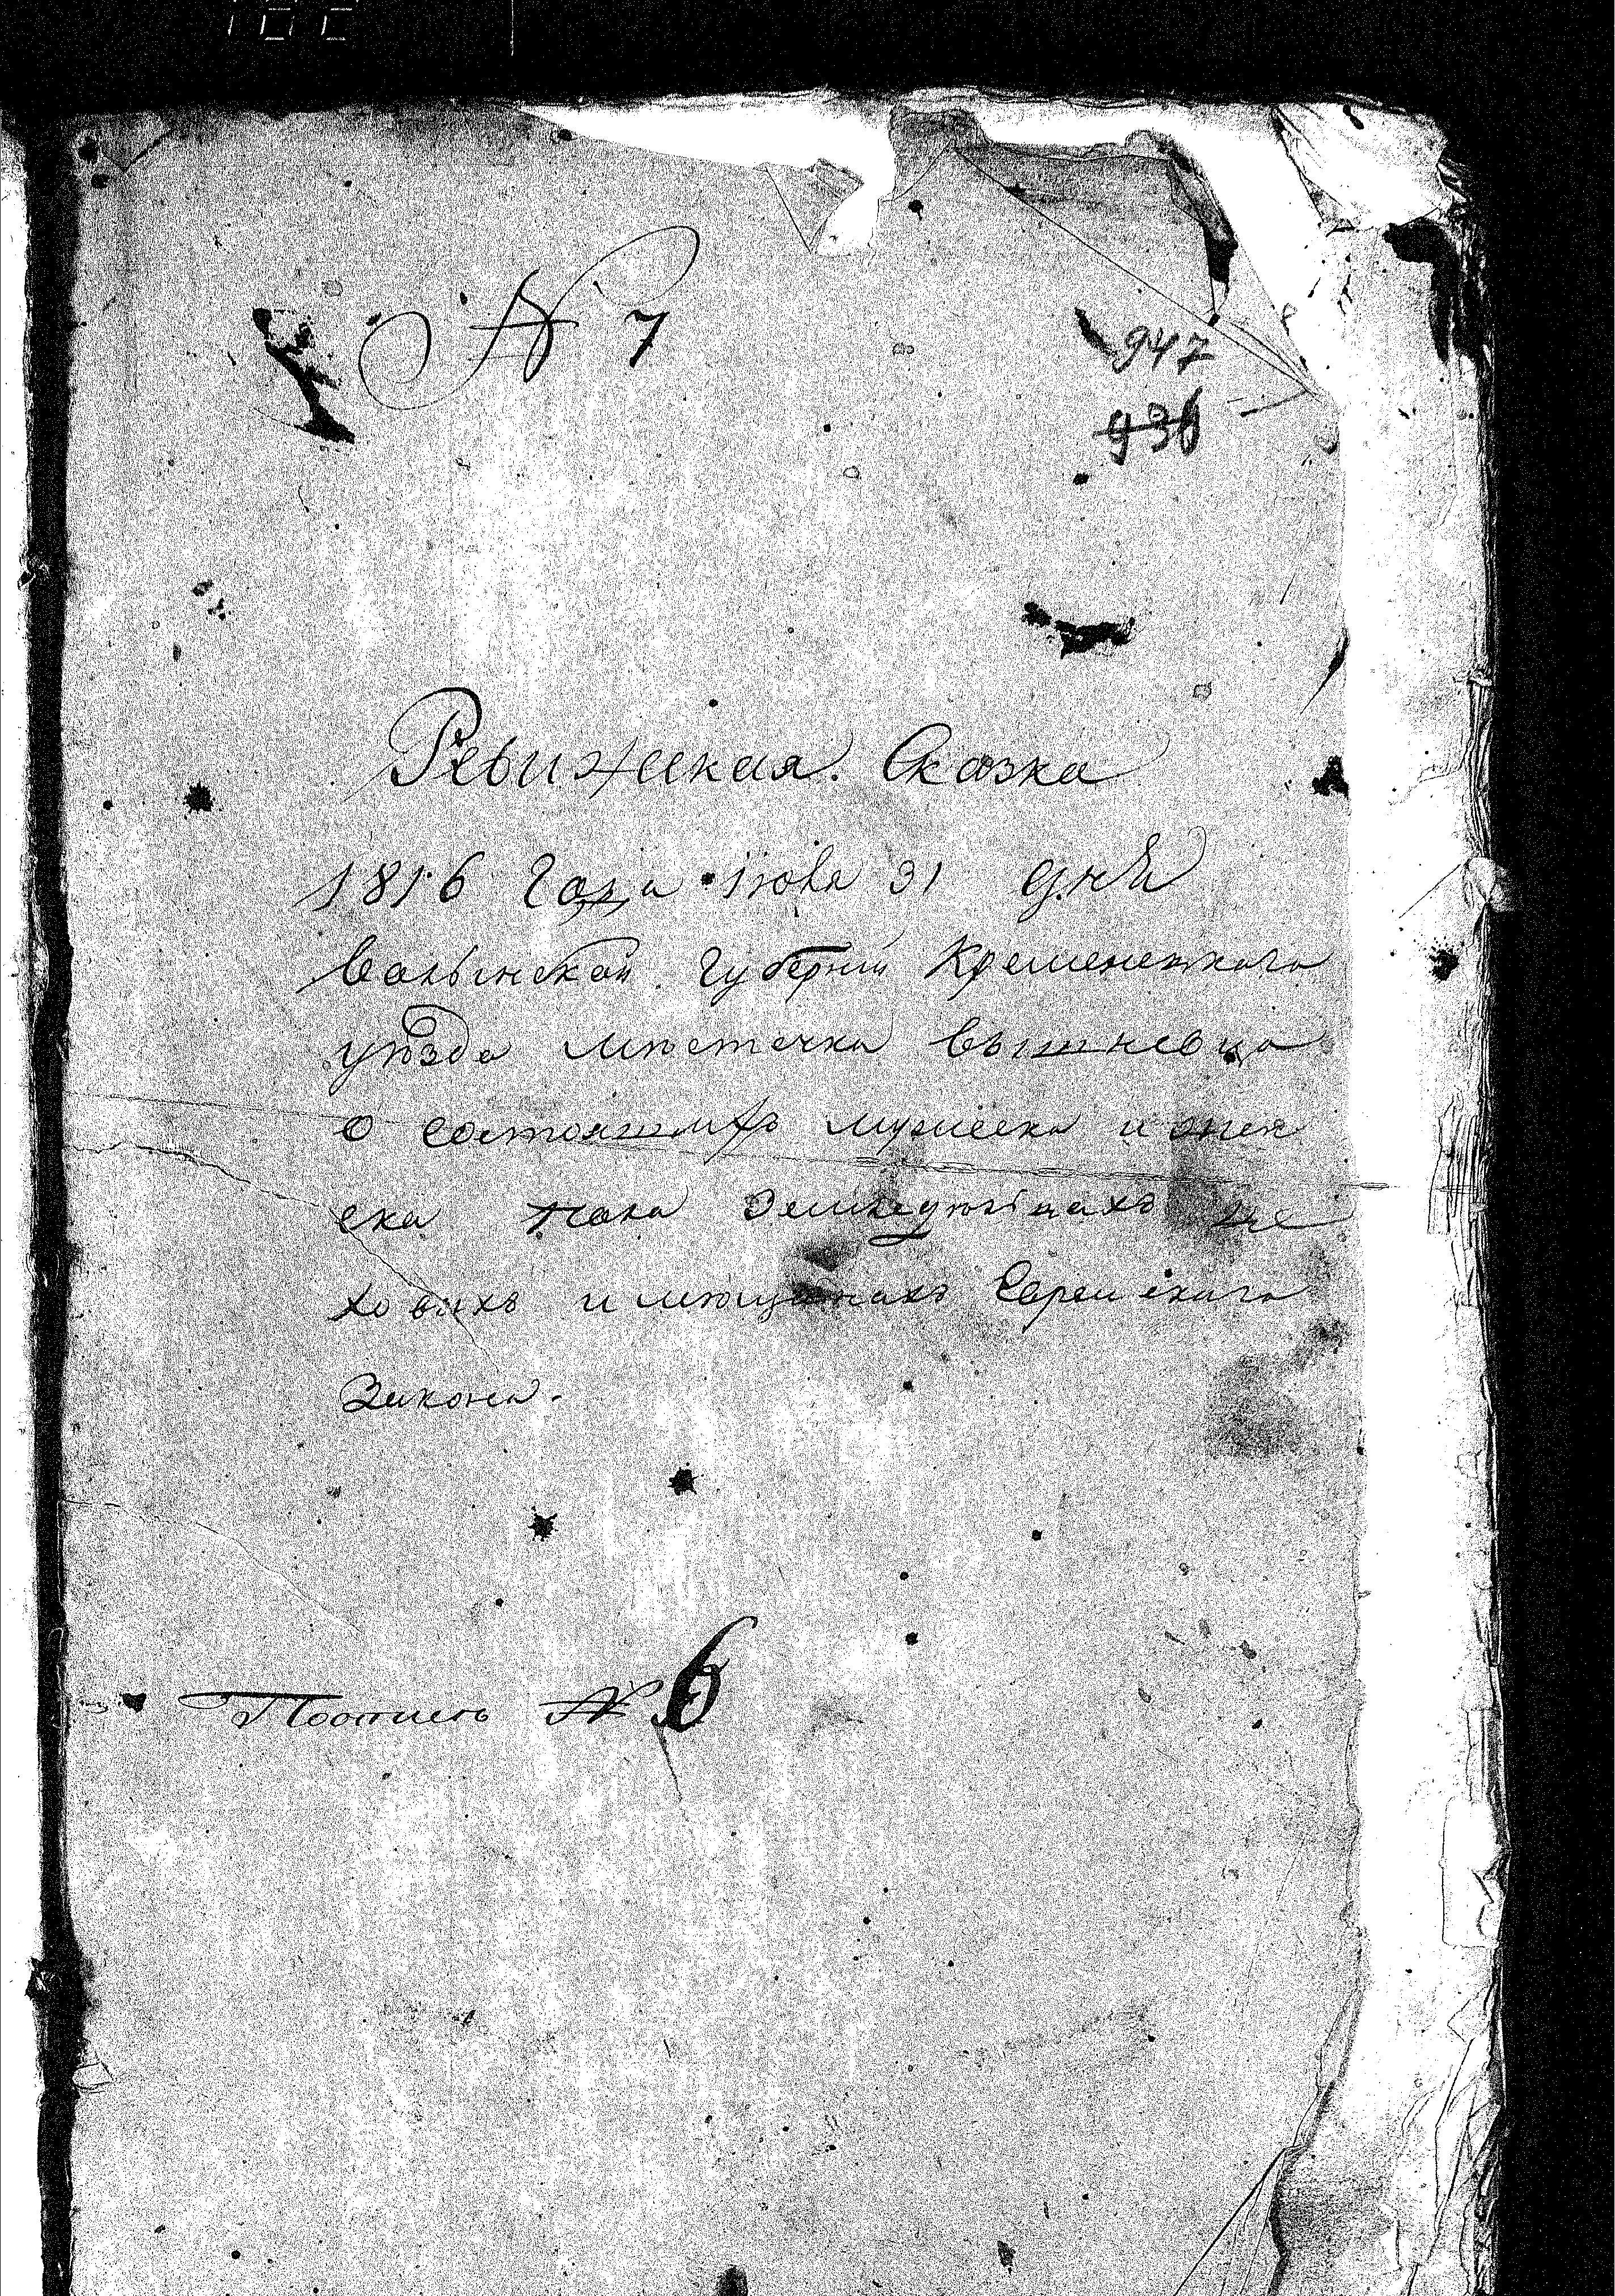 № 7
947
936
Ревижская. Сказка
1816 года июля 31 дня
Волынской Губернии Кременецкаго
уѣзда мѣстечка Вышневца
о состоящихъ мужеска и женя
ска пола
ховыхъ и мѣщанахъ Еврейскаго
Закона.
№ 6